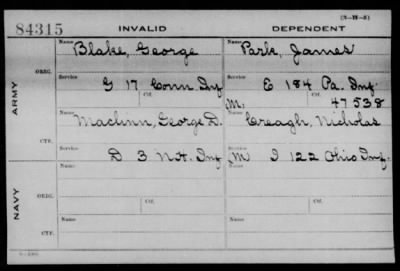 (3-W-8)
84315 INVALID DEPENDENT
Name Blake, George Name Park, James
ORIG.
Service G 17 Conn Inf Ctf. Service E 184 Pa. Inf. Ctf.
ARMY
M. 47538
Name Maclinn, George D. Name Creagh, Nicholas
CTF.
Service D 3 N.H. Inf Service M I 122 Ohio Inf.
NAVY
Name Name
ORIG.
Service Ctf. Service Ctf.
Name Name
CTF.